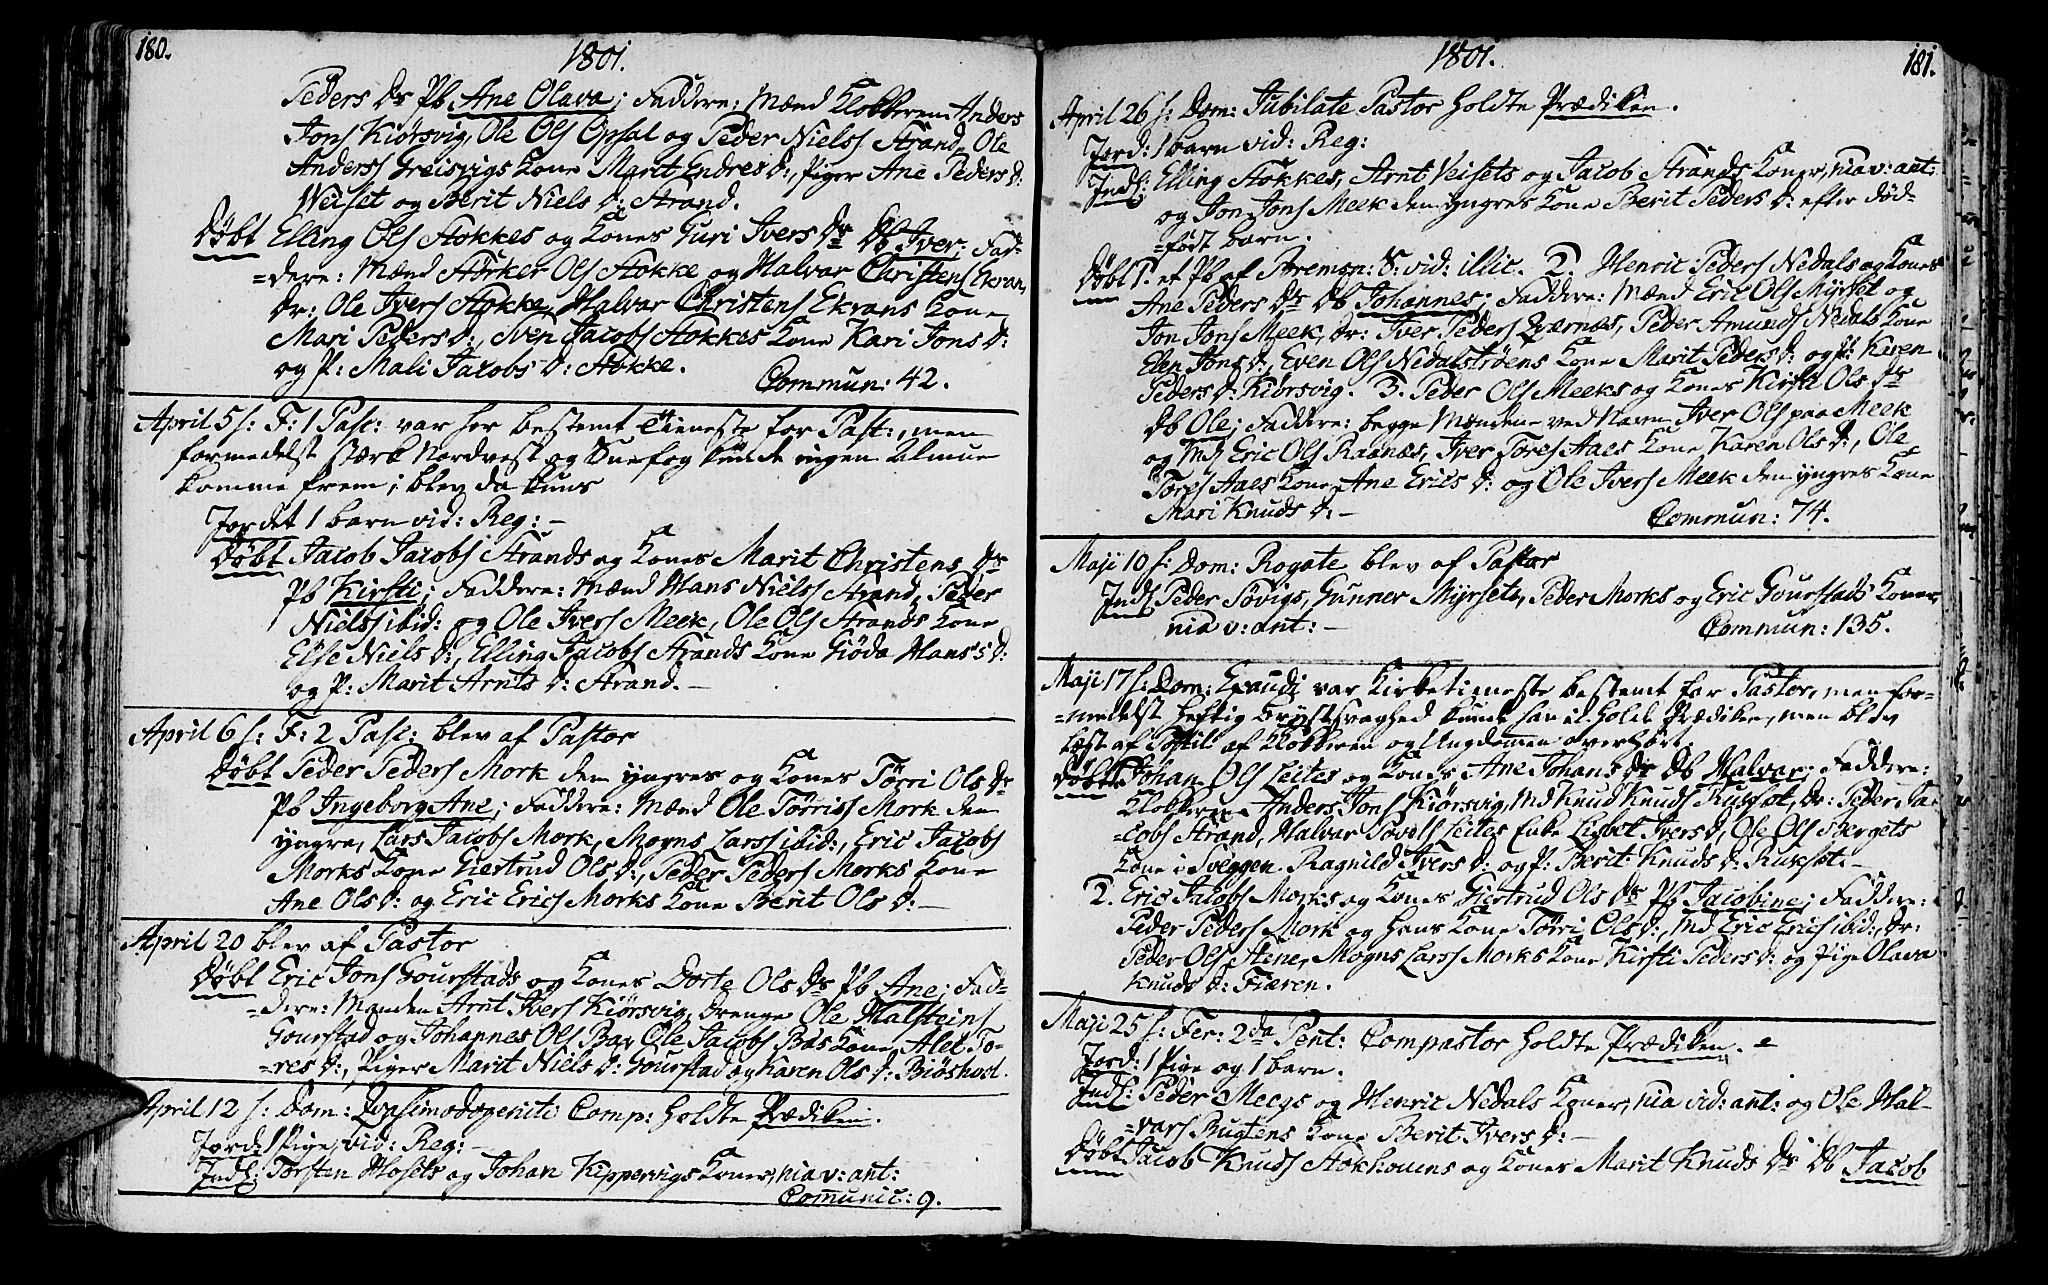 180.
1801.
Peders Dr Pb Ane Olava; Faddere: Mænd Klokkeren Anders
Jons Kiörsvig, Ole Ols Opsal og Peder Nielss Strand, Ole
Anderss Greisvigs Kone Marit Endres D:, Piger Ane Peders D:
Weiset og Berit Niels D: Strand.
Döbt Elling Ols Stokkes og Kones Guri Ivers Dr Db Iver; Fad-
=dere: Mænd Störker Ols Stokke og Halvar Christens Ekran,
Dr: Ole Ivers Stokke, Halvar Christens Ekrans Kone
Mari Peders D:, Sven Jacobs Stokkes Kone Kari Jons D:
og P: Mali Jacobs D: Stokke.
Commun: 42.
April 5 s: F: 1 Pasc: var her bestemt Tieneste for Past:, men
formedelst stærk Nordvest og Snefog kunde ingen Almue
komme frem; blev da kuns
Jordet 1 barn vid: Reg: -
Döbt Jacob Jacobs Strands og Kones Marit Christens Dr
Pb Kirsti; Faddere: Mænd Hans Nielss Strand, Peder
Nielss ibid: og Ole Ivers Meek, Ole Ols Strands Kone
Else Niels D:, Elling Jacobs Strands Kone Giöda Hans's D:
og P: Marit Arnts D: Strand. -
April 6 s: F: 2 Pasc: blev af Pastor
Döbt Peder Peders Mork den yngres og Kones Törri Ols Dr
Pb Ingeborg Ane; Faddere: Mænd Ole Törriss Mork den
yngre, Lars Jacobs Mork, Mogns Larss ibid:, Eric Jacobs
Morks Kone Giertrud Ols D:, Peder Peders Morks Kone
Ane Ols D: og Eric Erics Morks Kone Berit Ols D: -
April 20 blev af Pastor
Döbt Eric Jons Gourstads og Kones Dorte Ols Dr Pb Ane; Fad-
=dere: Manden Arnt Ivers Kiörsvig, Drenge Ole Halsteins
Gourstad og Johannes Ols Bas, Ole Jacobs Bas Kone Alet To-
=res D:, Piger Marit Niels D: Gourstad og Karen Ols D: Biöshol.
April 12 s: Dom: Qvasimodogeniti Comp: holdte Prædiken.
Jord: 1 Pige, vid: Reg: -
Indl: Torsten Hosets og Johan Kippervigs Koner, nia v: ant:
Comunic: 9.
1801.
181.
April 26 s: Dom: Jubilate Pastor holdte Prædiken.
Jord: 1 barn vid: Reg:
Indl: Elling Stokkes, Arnt Veisets og Jacob Strands Koner, nia v: ant:
og Jon Jons Meek den yngres Kone Berit Peders D: efter död-
=födt barn.
Döbt 1. et Pb af Bremsn: S: vid: illic. 2. Henric Peders Nedals og Kones
Ane Peders Dr Db Johannes; Faddere: Mænd Eric Ols Myrset og
Jon Jons Meek, Dr: Iver Peders Qværnæs, Peder Amunds Nedals Kone
Elen Jons D:, Even Ols Nedalströens Kone Marit Peders D: og P: Karen
Peders D: Kiörsvig. 3. Peder Ols Meeks og Kones Kirsti Ols Dr
Db Ole; Faddere: begge Mændene ved Navn Iver Ols paa Meek
og Md Eric Ols Raanæs, Iver Tores Aaes Kone Karen Ols D:, Ole
Tores Aaes Kone Ane Erics D: og Ole Ivers Meek den yngres Kone
Mari Knuds D: -
Commun: 74.
Maji 10 s: Dom: Rogate blev af Pastor
Indl Peder Sövigs, Gunner Myrsets, Peder Morks og Eric Gourstads Koner,
nia v: ant: -
Commun: 135.
Maji 17 s: Dom: Exaudi var Kirketieneste bestemt for Pastor, men for-
=medelst heftig Brystsvaghed kunde han ei holde Prædiken, men blev
læst af Postil af Klokkeren og Ungdommen overhört.
Döbt 1. Johan Ols Leites og Kones Ane Johans Dr Db Halvar; Faddere:
Klokkeren Anders Jons Kiörsvig, Md Knud Knuds Ruxsöt, Dr: Peder Ja-
=cobs Strand, Halvar Povels Leites Enke Lisbet Ivers D, Ole Ols Bergets
Kone i Sveggen Ragnild Ivers D: og P: Berit Knuds D: Ruxsöt. -
2. Eric Jacobs Morks og Kones Giertrud Ols Dr Pb Jacobine; Faddere:
Peder Peders Mork og hans Kone Törri Ols D:, Md Eric Erics ibid:, Dr:
Peder Ols Stene, Mogns Larss Morks Kone Kirsti Peders D: og Pige Olava
Knuds D: Fiæren.
Maji 25 s: Fer: 2da Pent: Compastor holdte Prædiken. -
Jord: 1 Pige og 1 barn.
Indl: Peder Meeks og Henric Nedals Koner, nia vid: ant: og Ole Hal-
=vars Bugtens Kone Berit Ivers D: -
Döbt Jacob Knuds Stokhouens og Kones Marit Knuds Dr Db Jacob